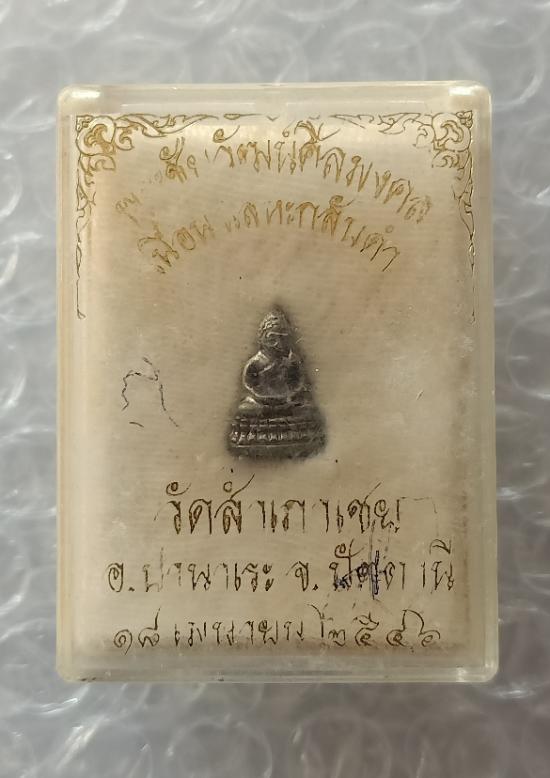 วัฒน์ศีลมงคล
เนื้อ กลับดำ
วัดสำเภาเชย
อ.ปานาเระ จ.ปัตตานี
๑๘ เมษายน ๒๕๔๖